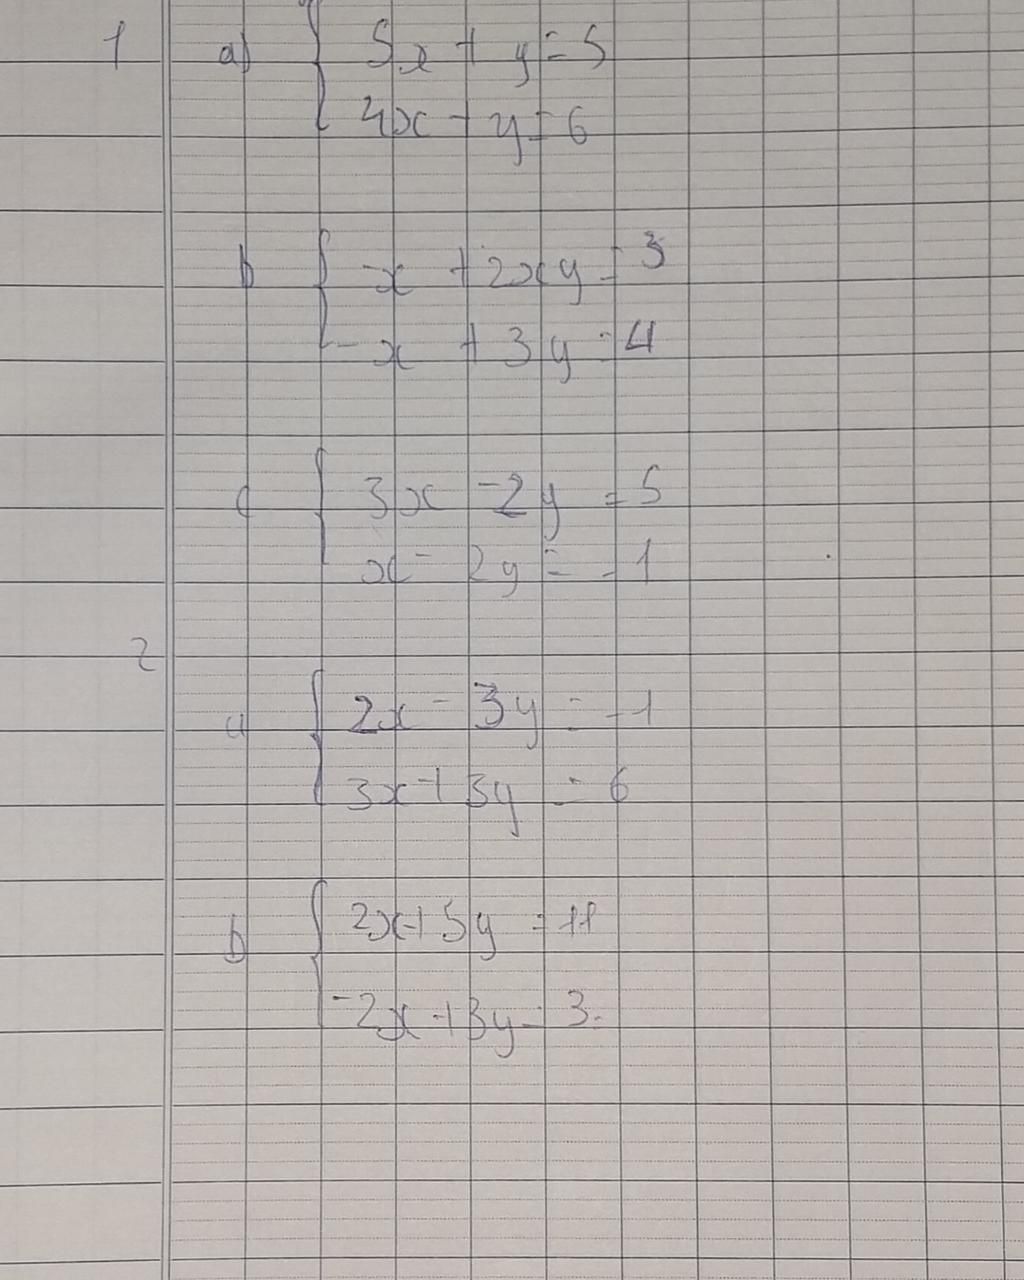 1 a) 5x + y = 5
4x - y = 6
b x + 2xy = 3
-x + 3y = 4
c 3x - 2y = 5
x - 2y = -1
2
a 2x - 3y = -1
3x + 3y = 6
b 2x + 5y = 11
-2x + 3y = 3.